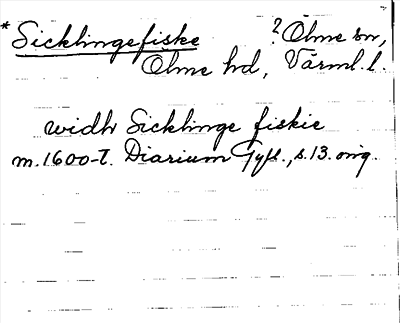 *Sicklingefiske ? Ölme sn,
Ölme hd, Värml. l.
widh Sicklinge fiskie
m. 1600-t. Diarium Gyll., s. 13. orig.